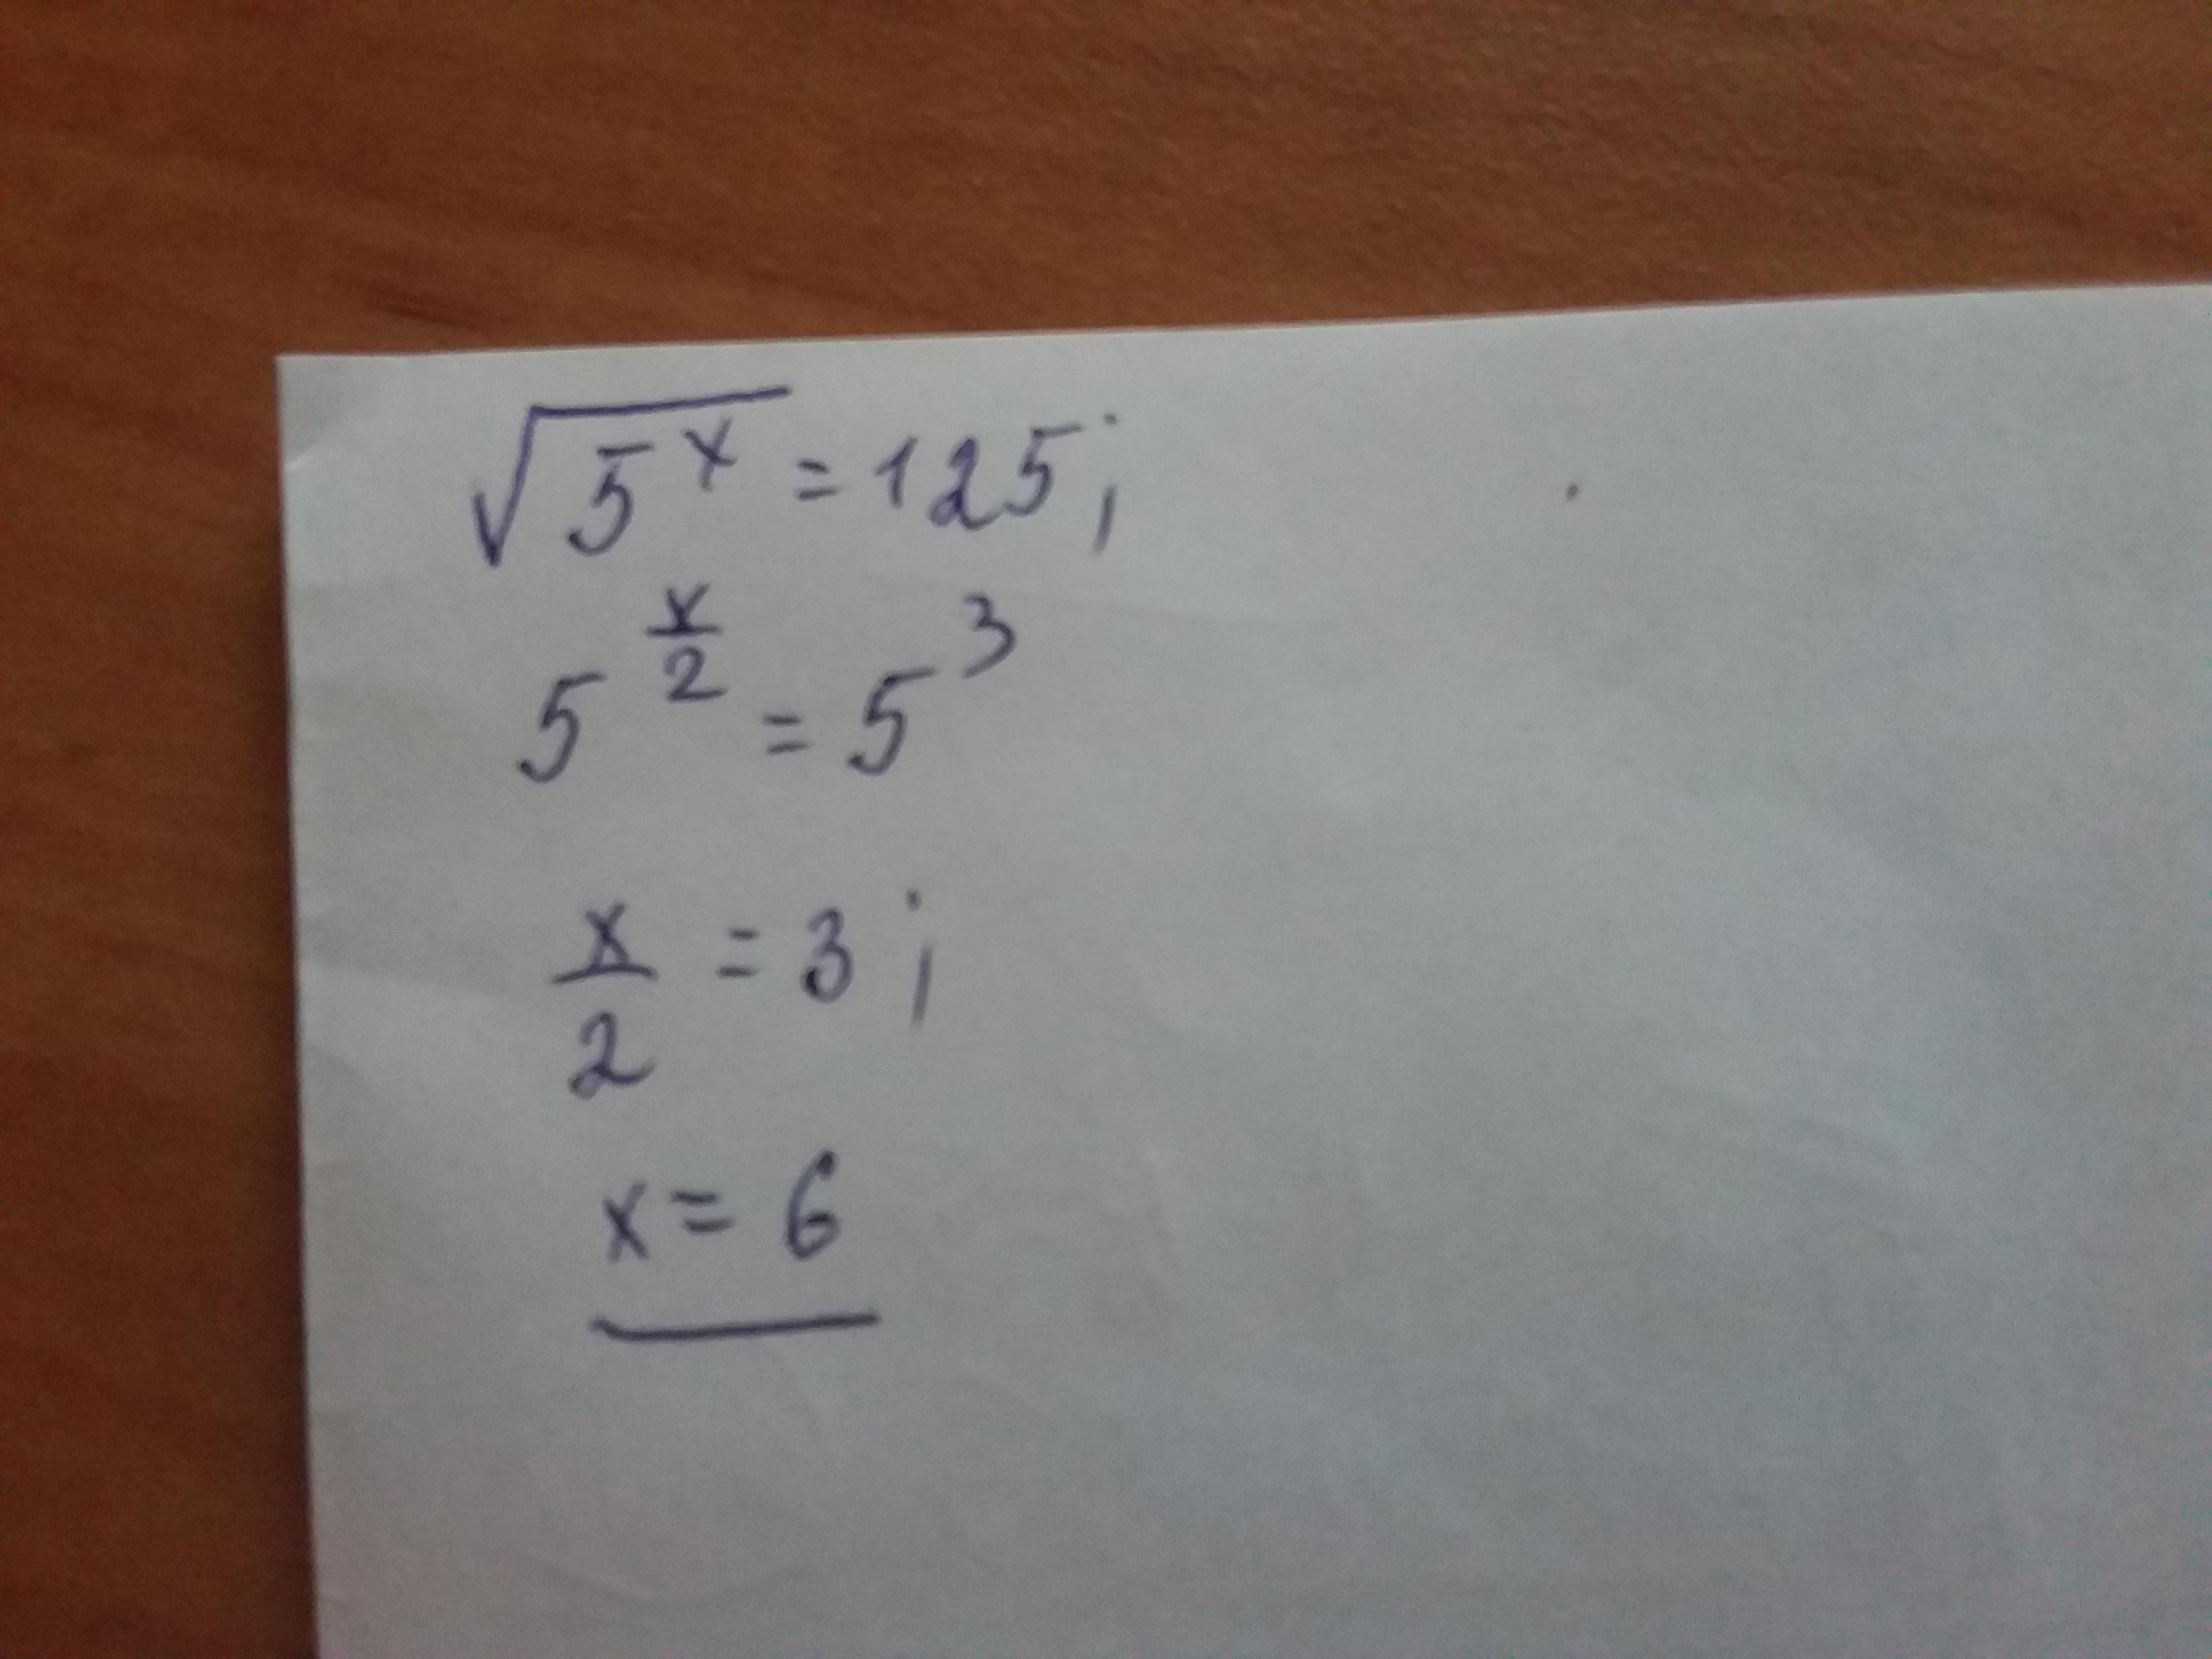 √5^x = 125;
5^(x/2) = 5^3
x/2 = 3;
x = 6